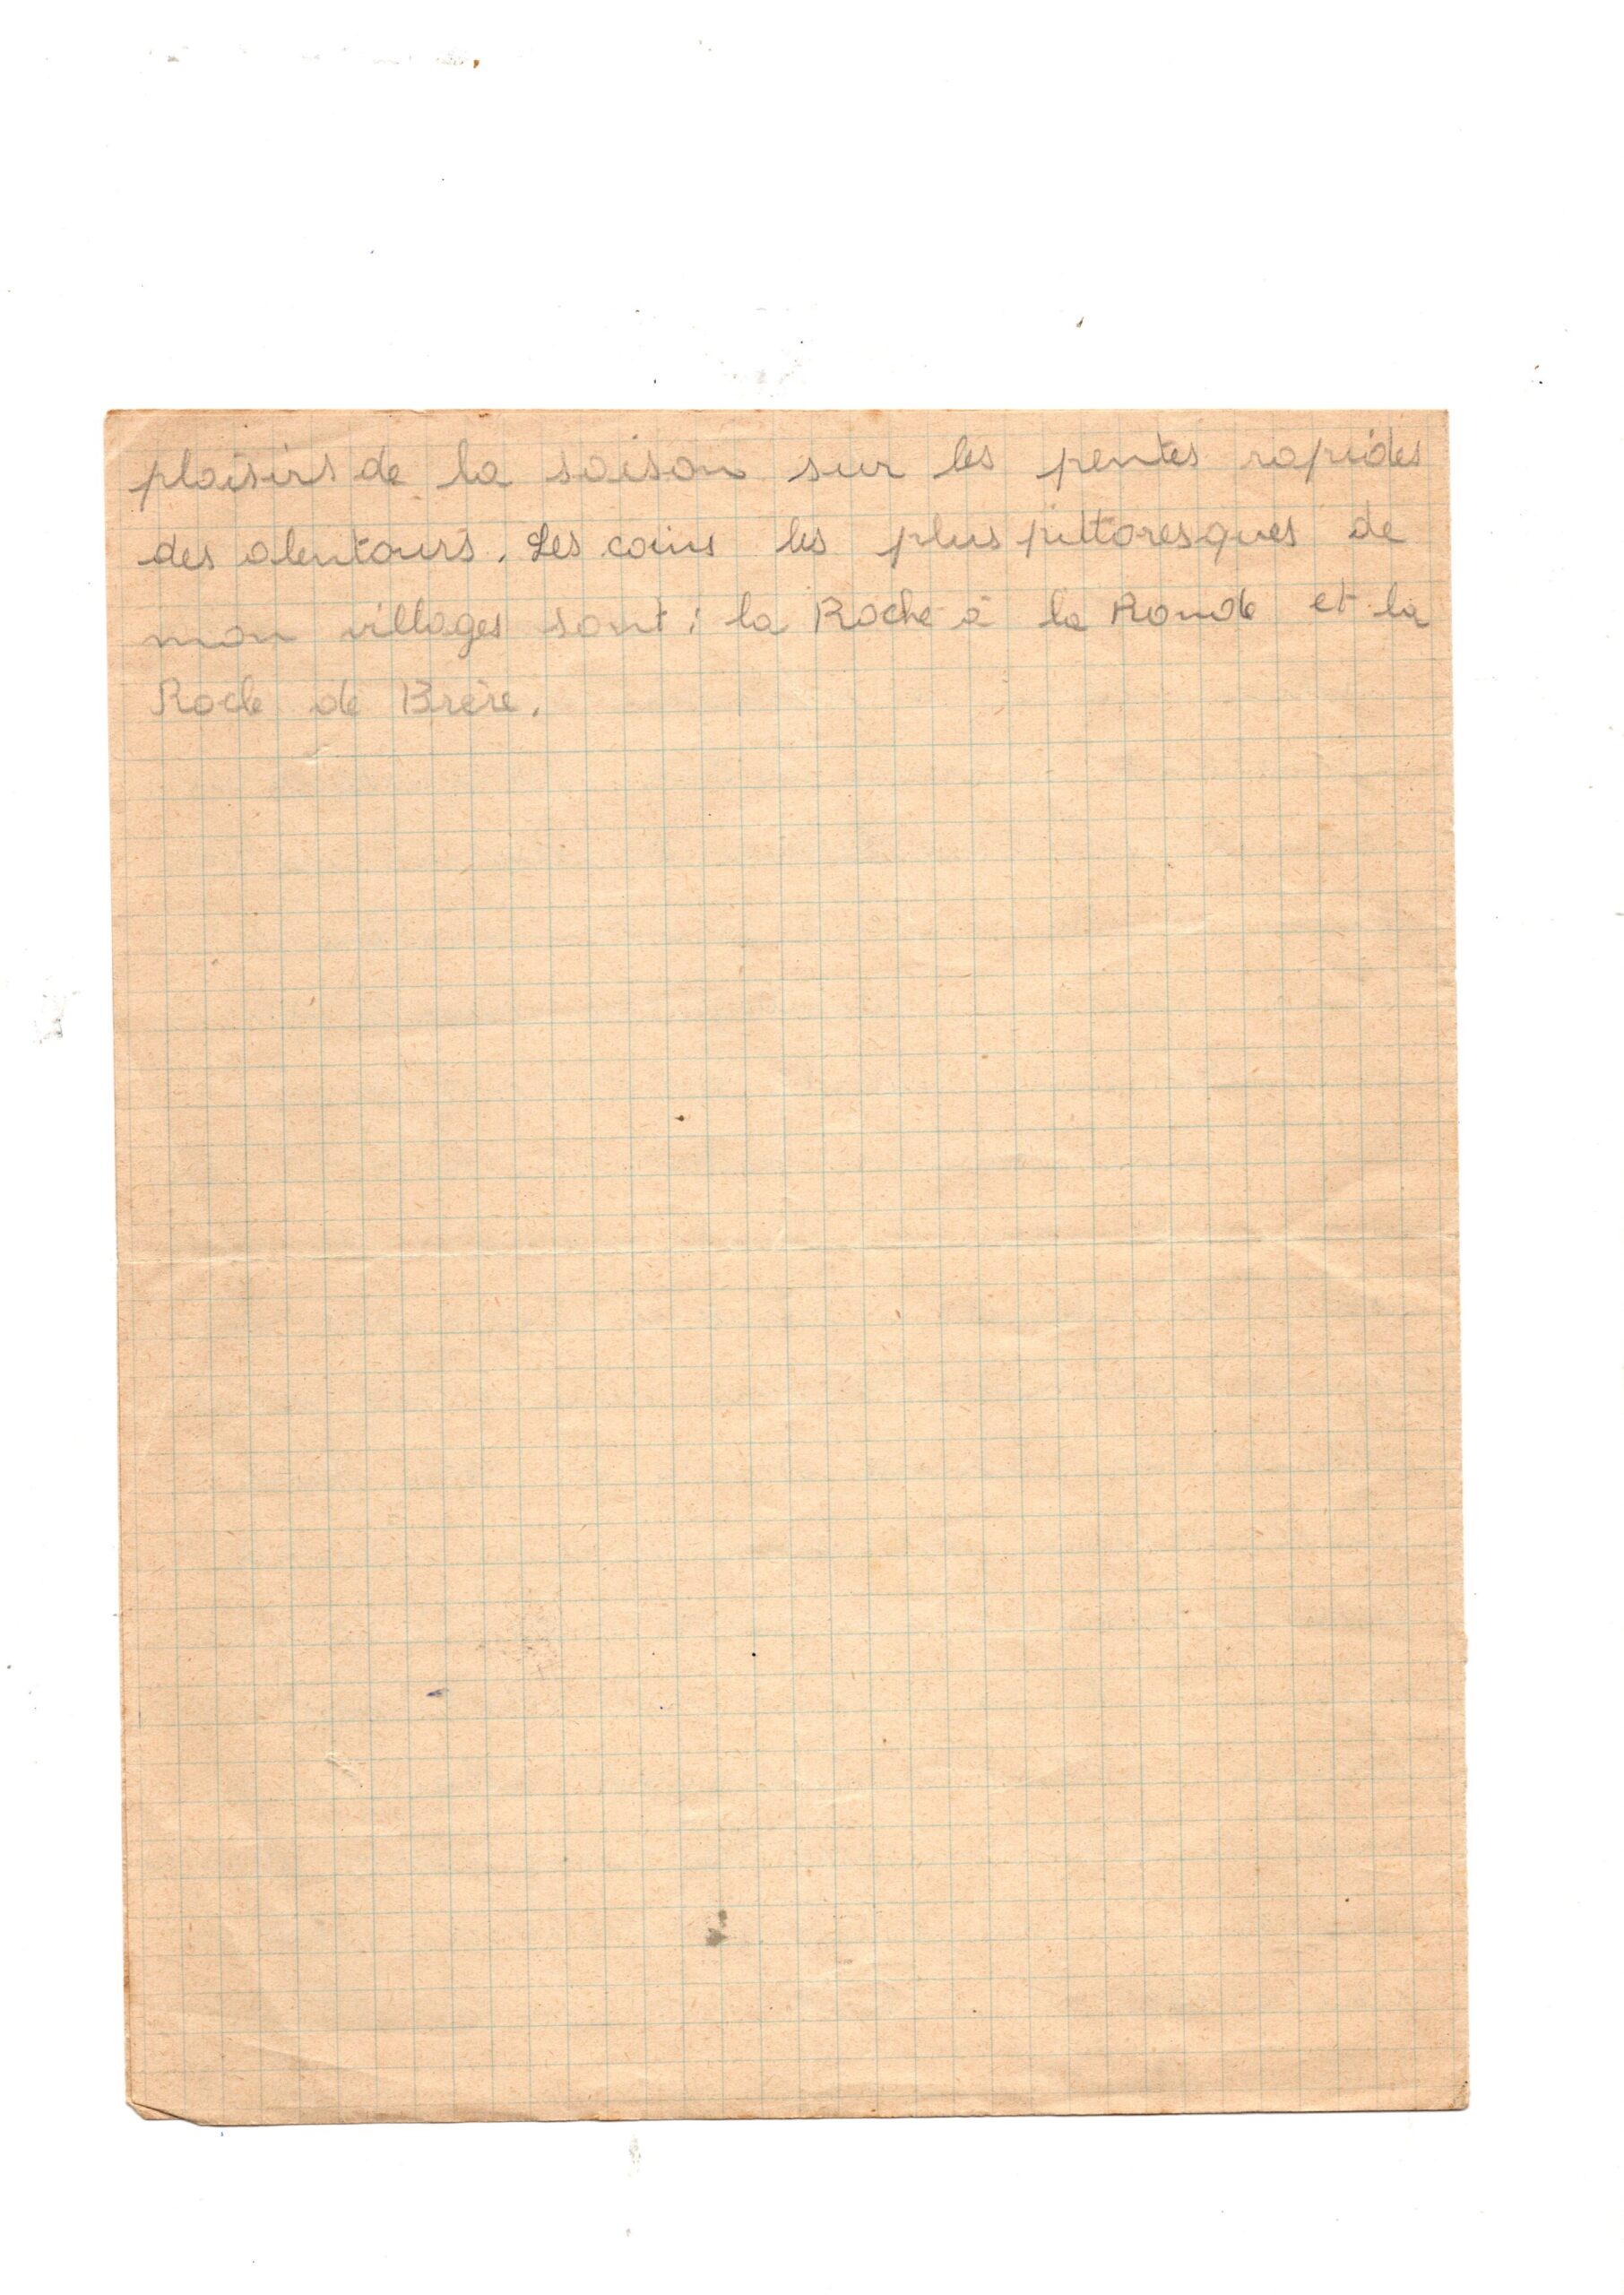 plaisirs de la saison sur les pentes rapides
des alentours. Les coins les plus pittoresques de
mon villages sont : la Roche à la Ronde et la
Roche de Brère.